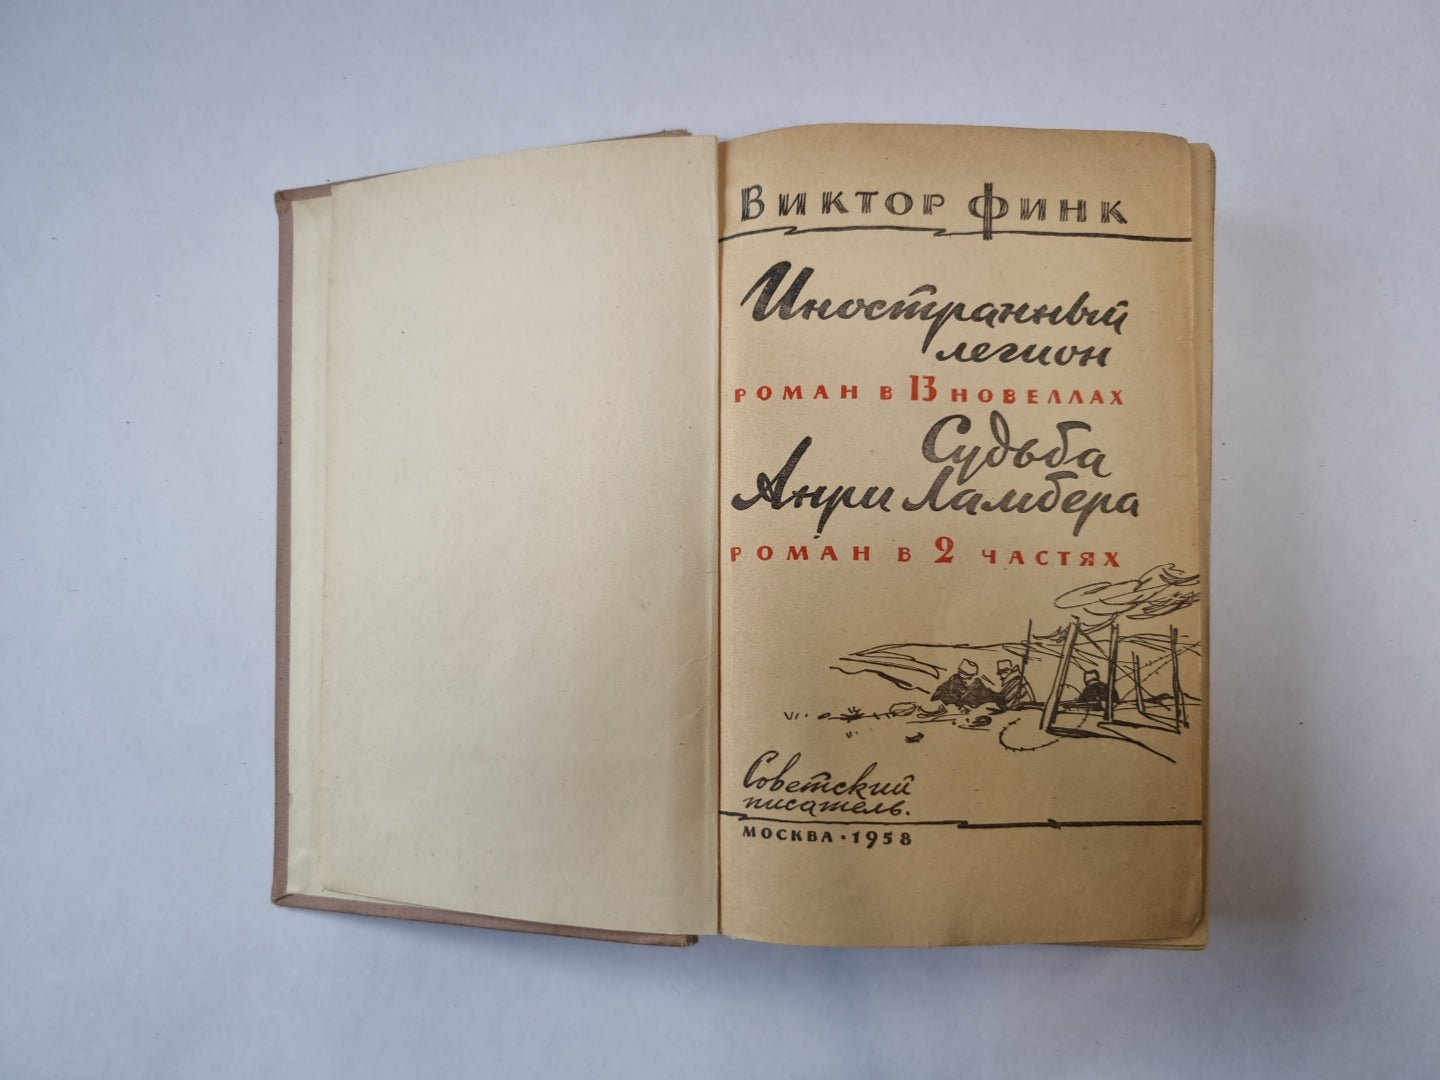 ВИКТОР ФИНК
Иностранный
легион
РОМАН В 13 НОВЕЛЛАХ
Судьба
Анри Ламбера
РОМАН В 2 ЧАСТЯХ
Советский
писатель.
МОСКВА · 1958